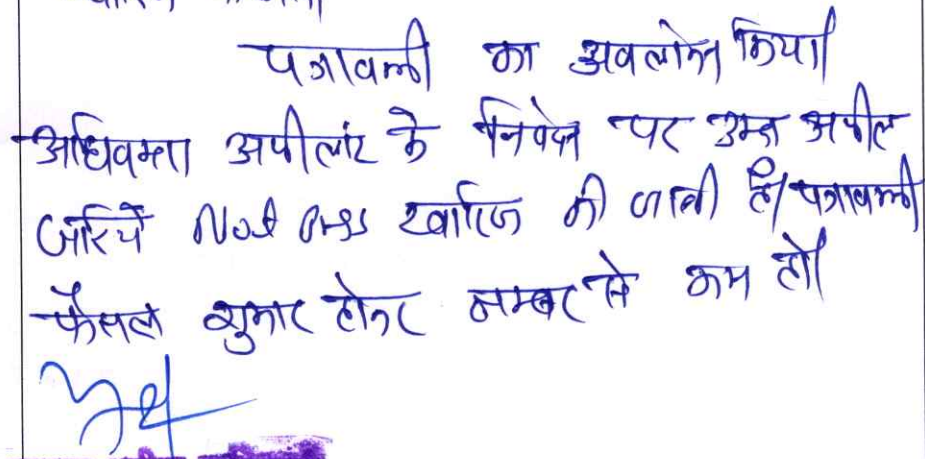 पत्रावली का अवलोकन किया।
अधिवक्ता अपीलांट के निवेदन पर उक्त अपील
जरिये Not Press खारिज की जाती है। पत्रावली
फैसल शुमार होकर नम्बर से कम हो।